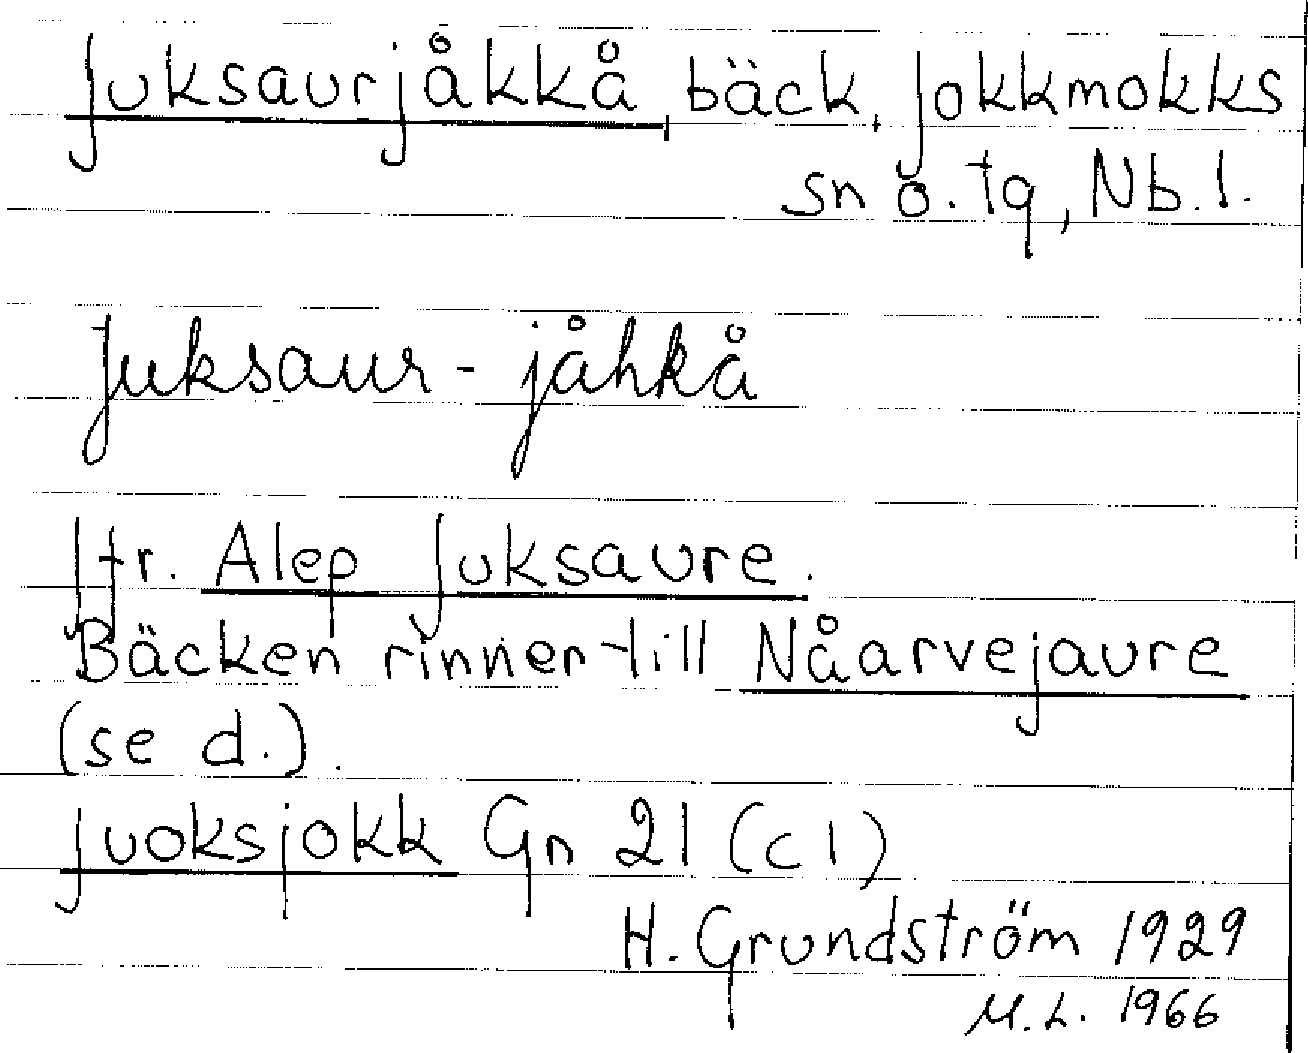 Juksaurjåkkå, bäck, Jokkmokks
sn o. tg, Nb. l.
Juksaur-jåhkå
Jfr. Alep Juksaure.
Bäcken rinner till Nåarvejaure
(se d.).
Juoksjokk Gn 21 (c 1)
H. Grundström 1929
M. L. 1966